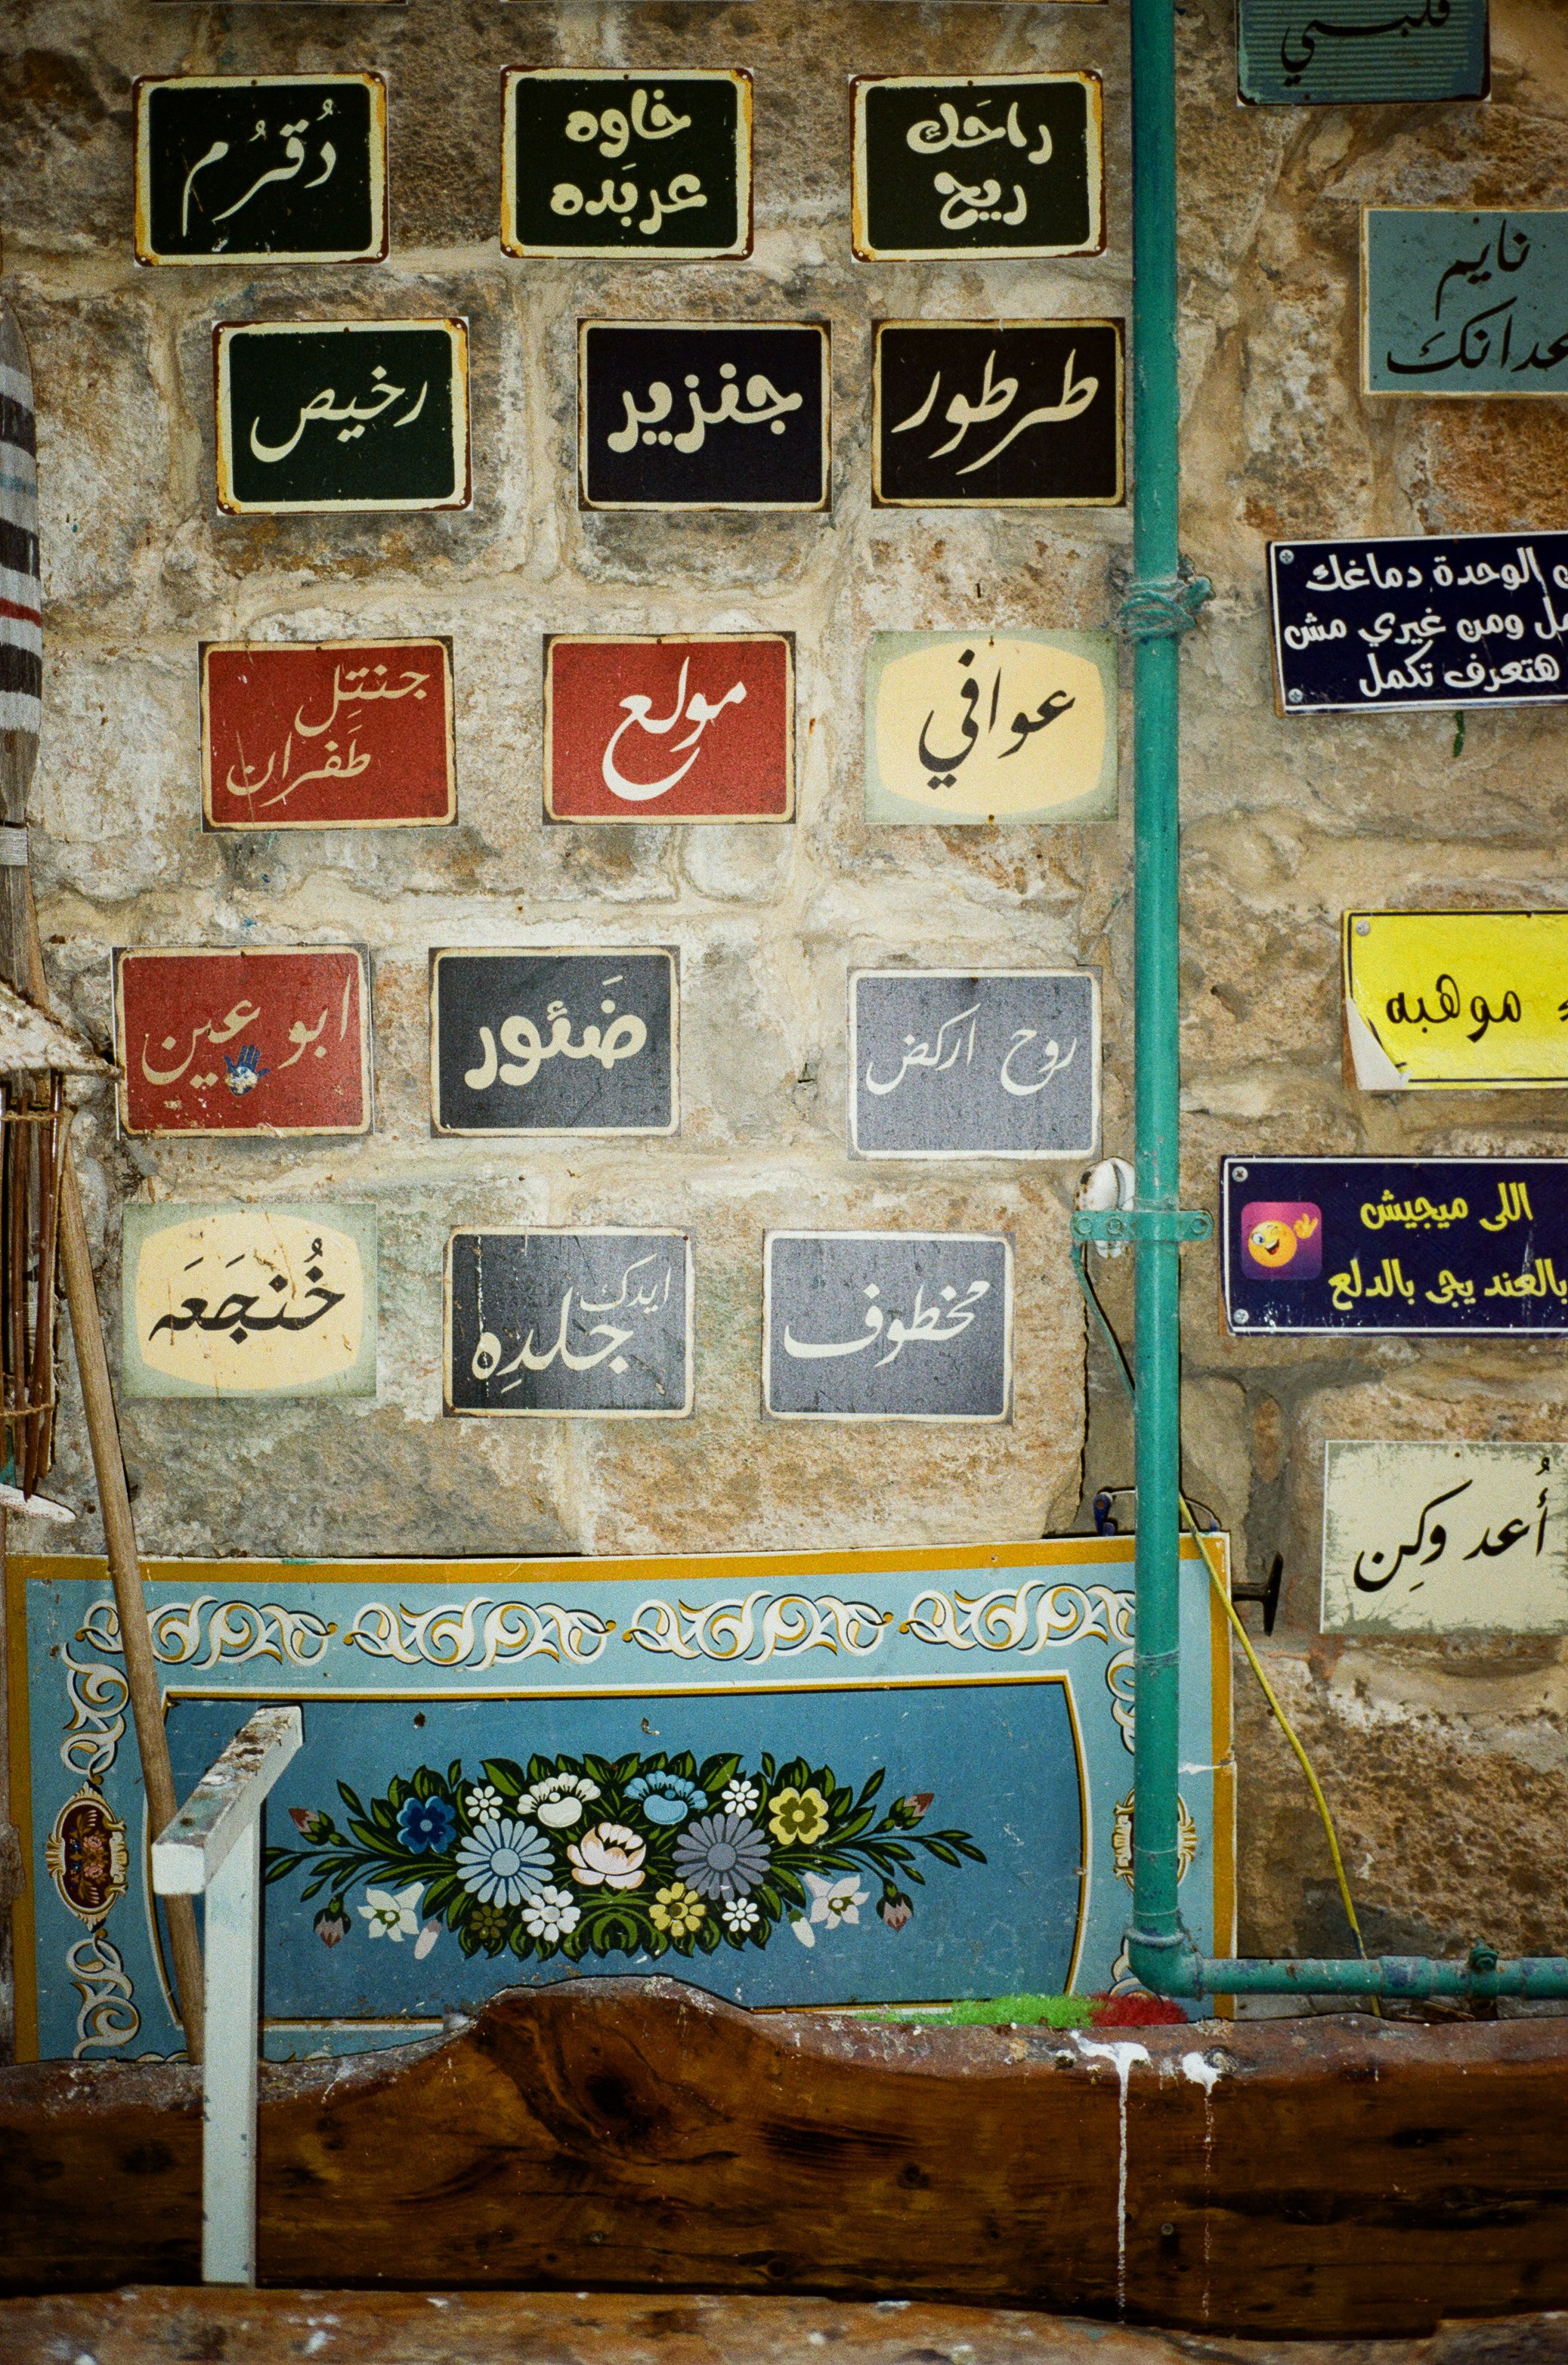 قلبي
راحَك
ريح
خاوه
عربَده
دُقرُم
نايم
عدانك
طرطور
جنزير
رخيص
الوحدة دماغك
ومن غيري مش
هتعرف تكمل
عوافي
مولع
جنتَل
طَفران
موهبه
روح اركض
ضَئور
ابو عين
اللى ميجيش
بالعند يجى بالدلع
مخطوف
ايدك
جلدِه
خُنجَعَه
أُعد وكِن